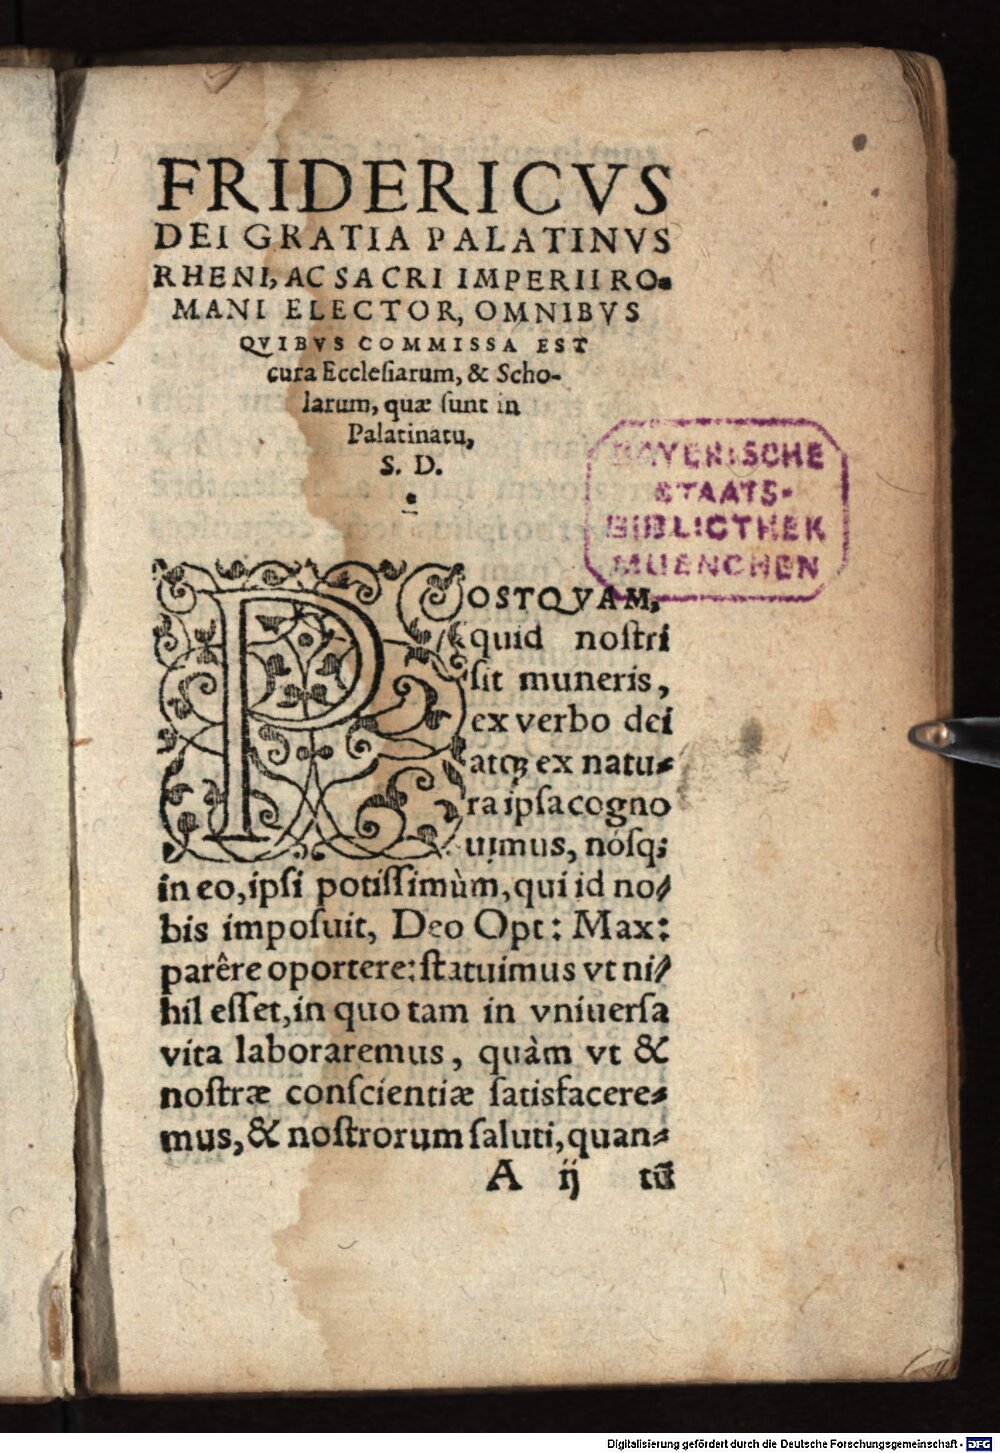 FRIDERICVS
DEI GRATIA PALATINVS
RHENI, AC SACRI IMPERII RO-
MANI ELECTOR, OMNIBVS
QVIBVS COMMISSA EST
cura Ecclesiarum, & Scho-
larum, quæ sunt in
Palatinatu,
S. D.
BAYERISCHE
STAATS-
BIBLIOTHEK
MUENCHEN
POSTQVAM,
quid nostri
sit muneris,
ex verbo dei
atq; ex natu-
ra ipsa cogno
uimus, nósq;
in eo, ipsi potissimùm, qui id no-
bis imposuit, Deo Opt: Max:
parêre oportere: statuimus vt ni-
hil esset, in quo tam in vniuersa
vita laboraremus, quàm vt &
nostræ conscientiæ satisfacere-
mus, & nostrorum saluti, quan-
A ij tũ
Digitalisierung gefördert durch die Deutsche Forschungsgemeinschaft - DFG